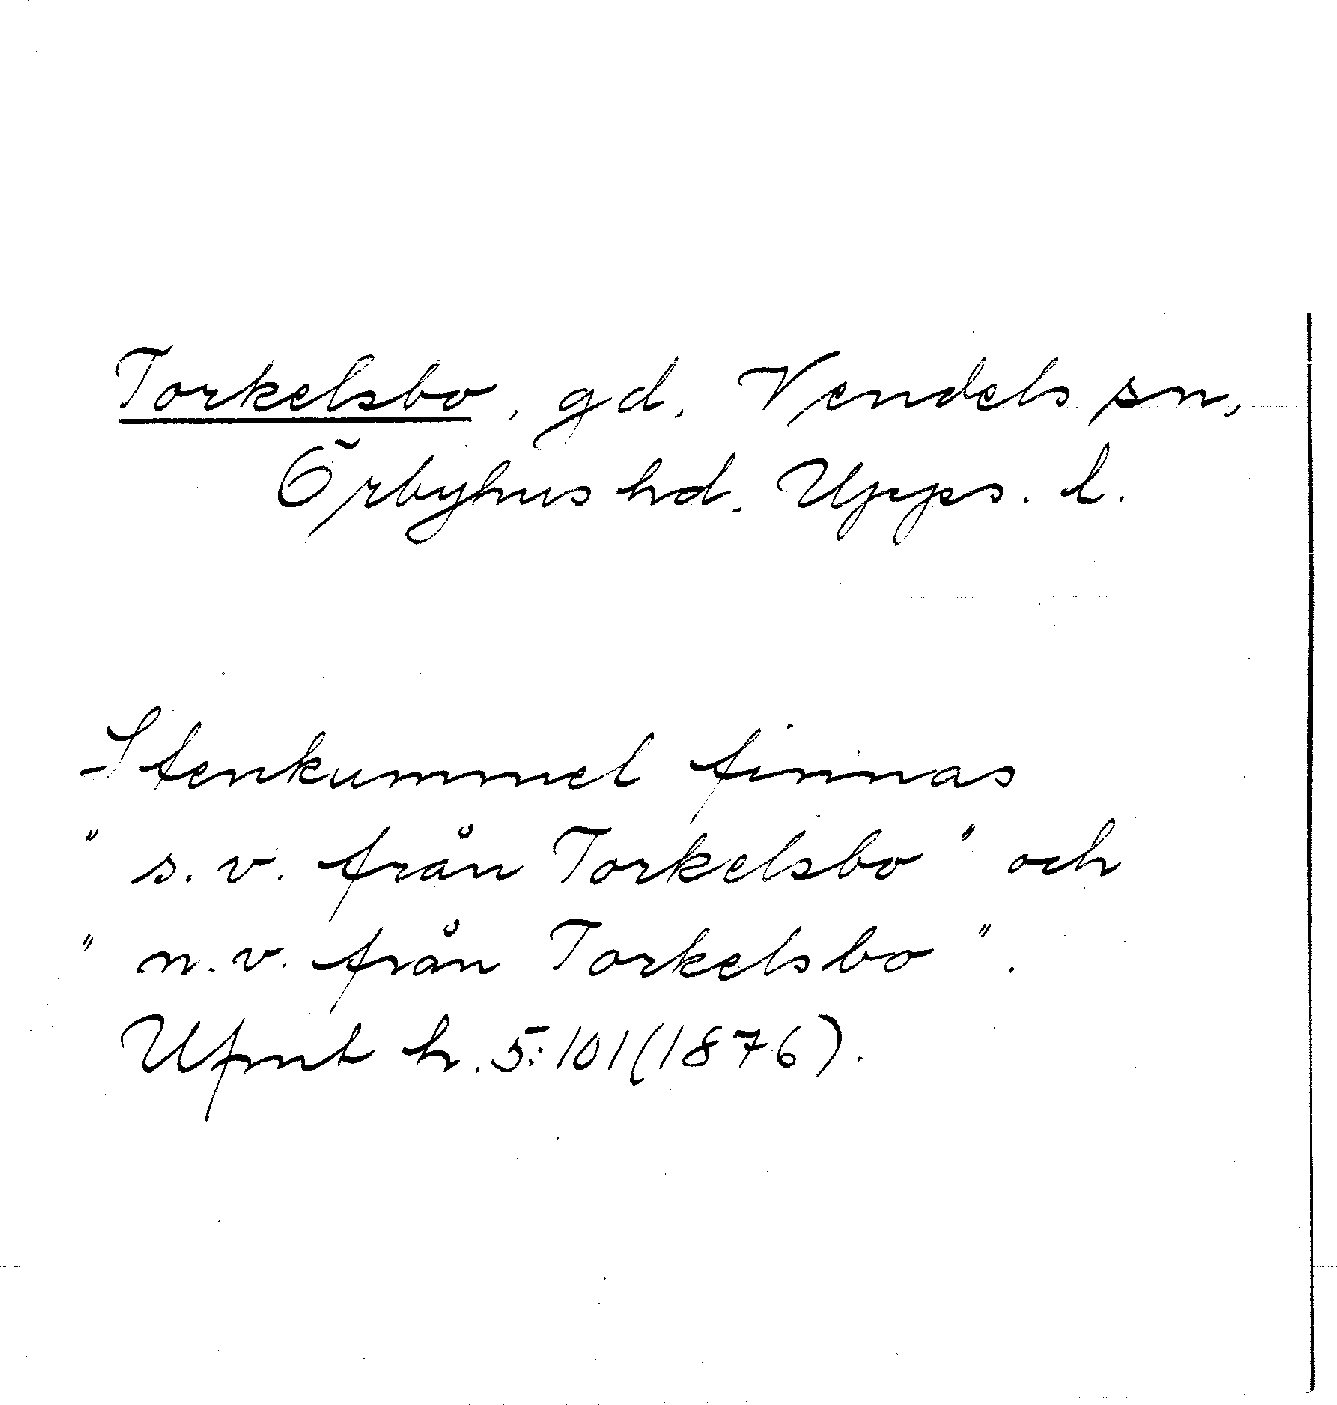 Torkelsbo, gd, Vendels sn,
Örbyhus hd. Upps. l.
Stenkummel finnas
" s.v. från Torkelsbo" och
" n.v. från Torkelsbo".
Ufmt h. 5:101(1876).